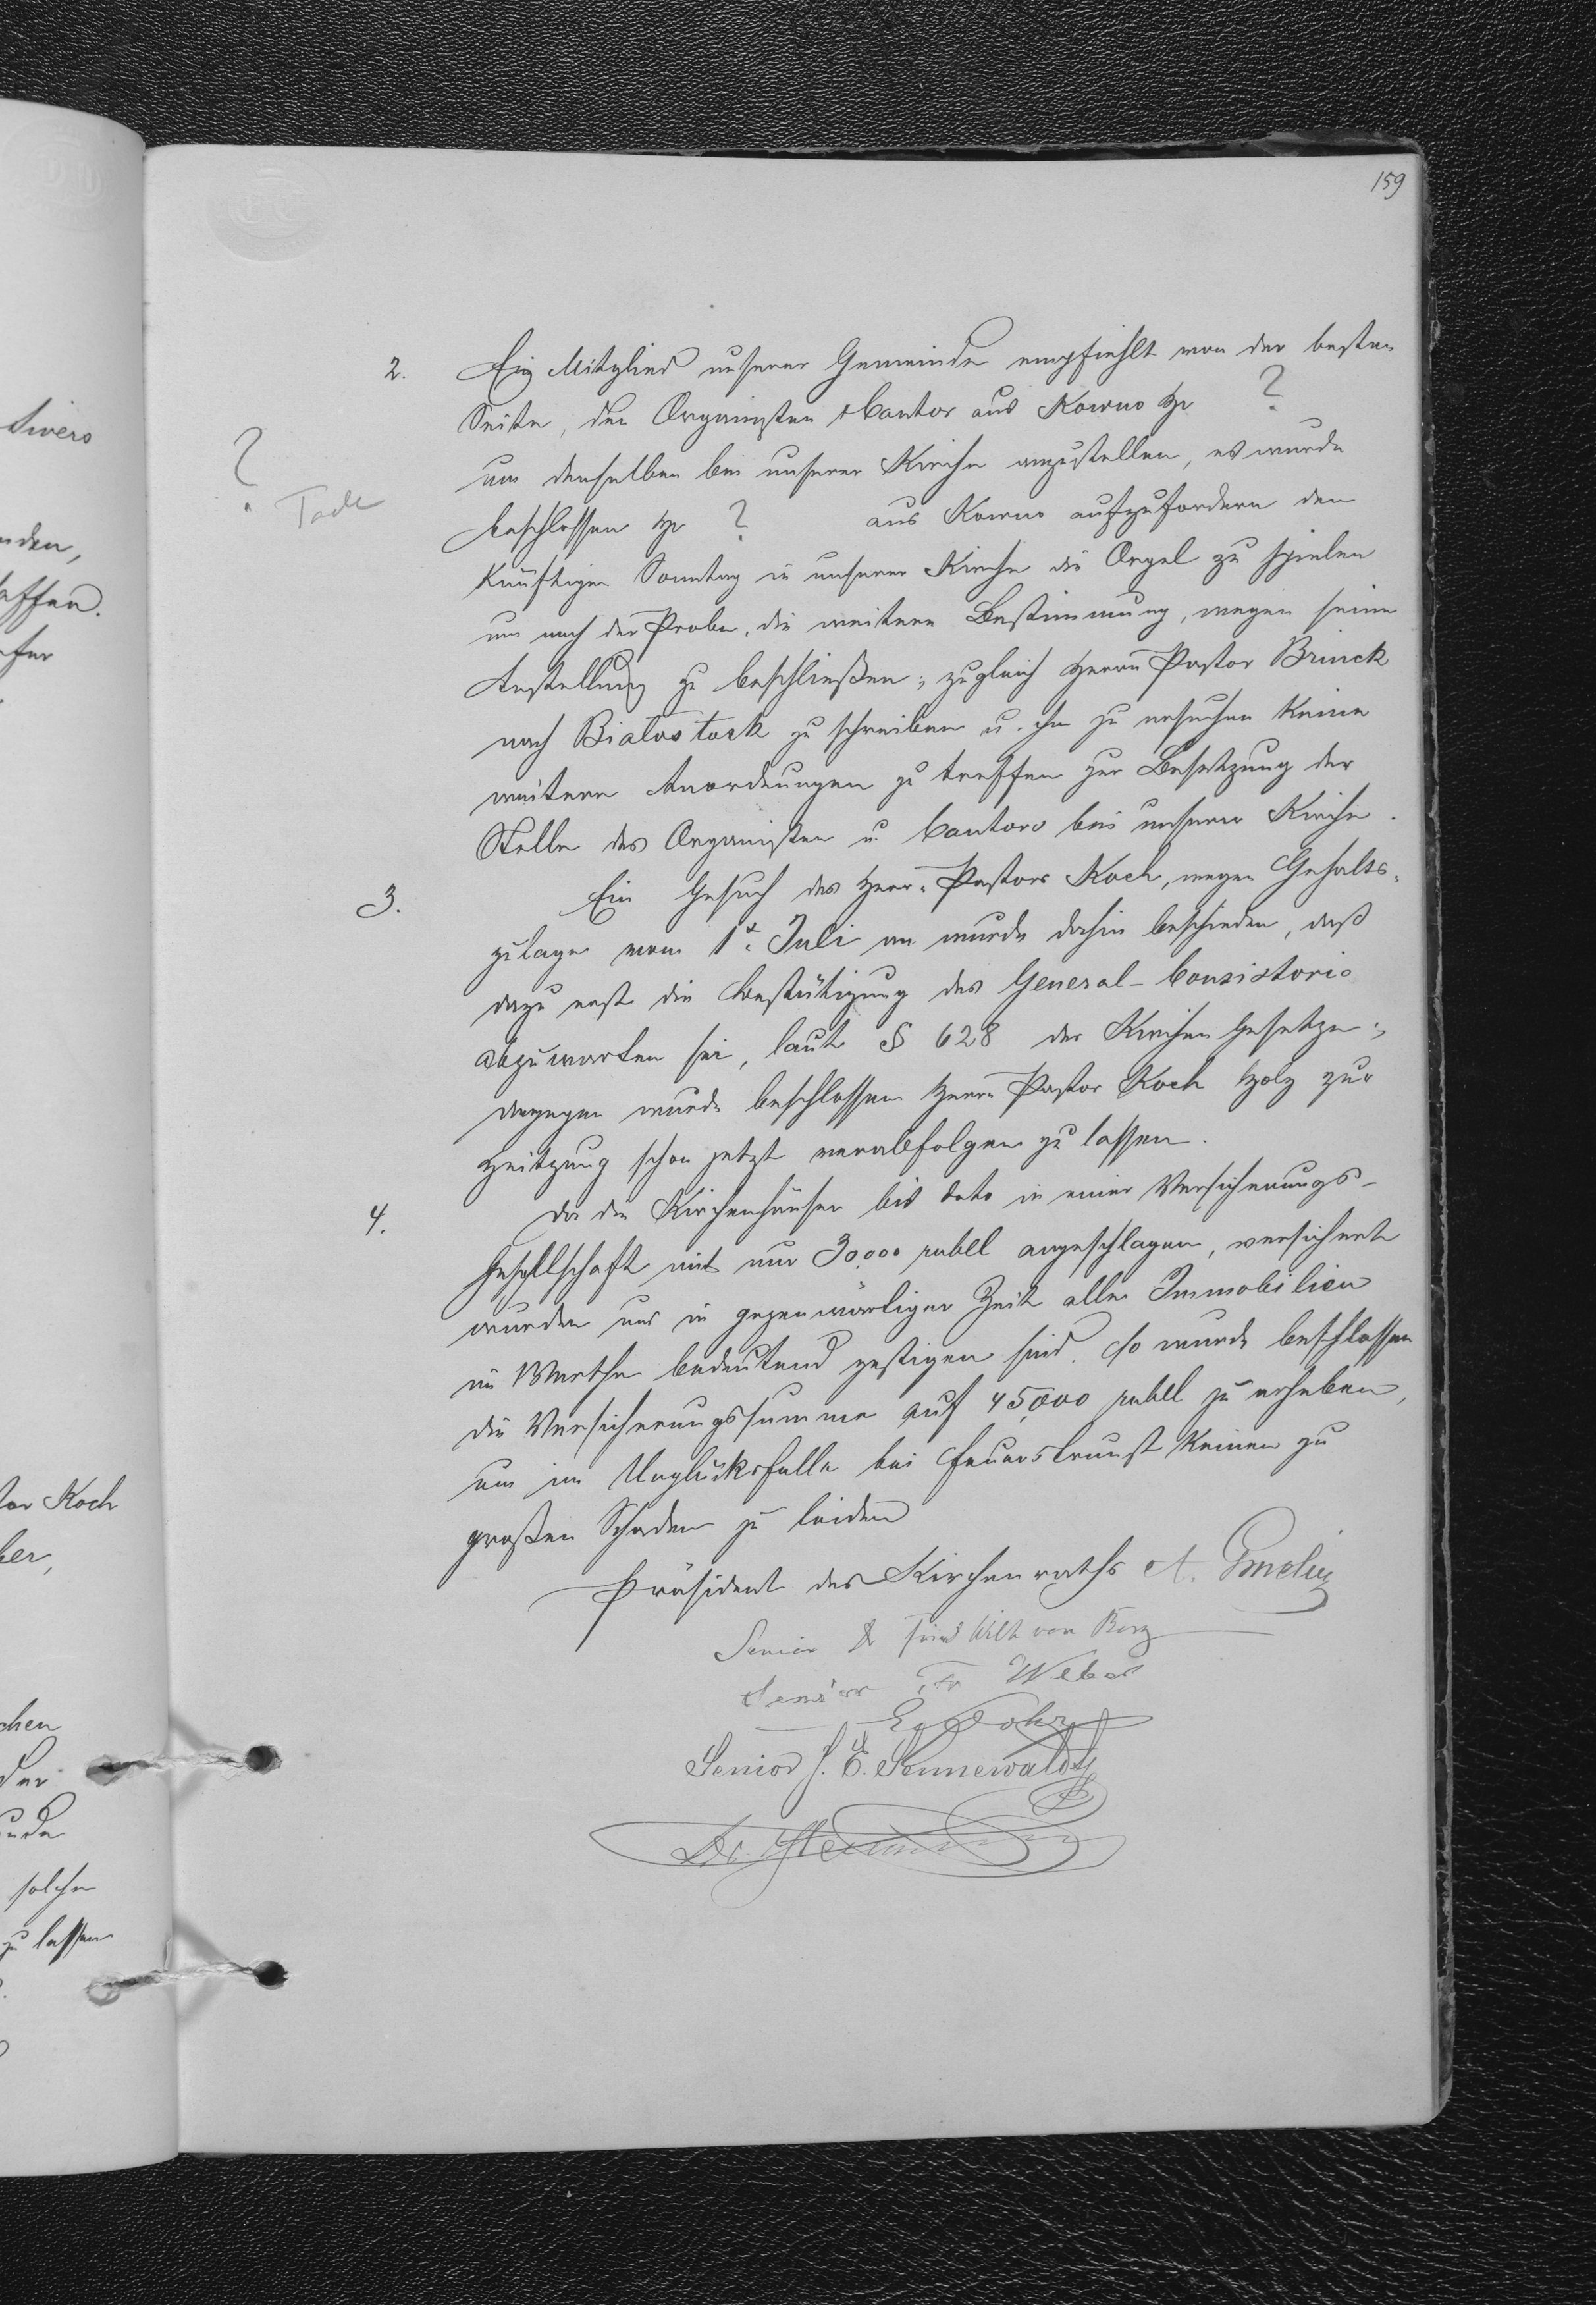 159
2. Ein Mitglied unserer Gemeinde empfiehlt von der besten
Seite, den Organisten & Cantor aus Kowno Hr ?
um denselben bei unserer Kirche anzustellen, es wurde
? Tode
beschlossen Hr ? aus Kowno aufzufordern den
künftigen Sonntag in unserer Kirche die Orgel zu spielen
um nach der Probe, die weitere Bestimmung, wegen seine
Anstellung zu beschließen; zugleich Herrn Pastor Brinck
nach Białostock zu schreiben u. ihn zu ersuchen keine
weitere Anordnungen zu treffen zur Besetzung der
Stelle des Organisten u. Cantors bei unserer Kirche.
3. Ein Gesuch des Herrn Pastors Koch, wegen Gehalts-
zulage vom 1t Juli an wurde dahin beschieden, daß
dazu erst die Bestätigung des General-Consistorio
abzuwarten sei, laut § 628 der Kirchen Gesetze;
dagegen wurde beschlossen Herrn Pastor Koch Holz zur
Heitzung schon jetzt verabfolgen zu lassen.
4. Da die Kirchenhäuser bis dato in einer Versicherungs-
Gesellschaft mit nur 30,000 rubel angeschlagen, versichert
wurden und in gegenwärtiger Zeit alle Immobilien
im Werthe bedeutend gestigen sind. So wurde beschlossen
die Versicherungssumme auf 45,000 rubel zu erheben,
um im Unglücksfalle bei Feuersbrunst keinen zu
großen Schaden zu leiden
Präsident des Kirchenraths A.
Senior Dr von
Senior Fr Weber
Senior J. E. Sonnewaldt
Dr.
Sivers
tor Koch
solche
zu lassen